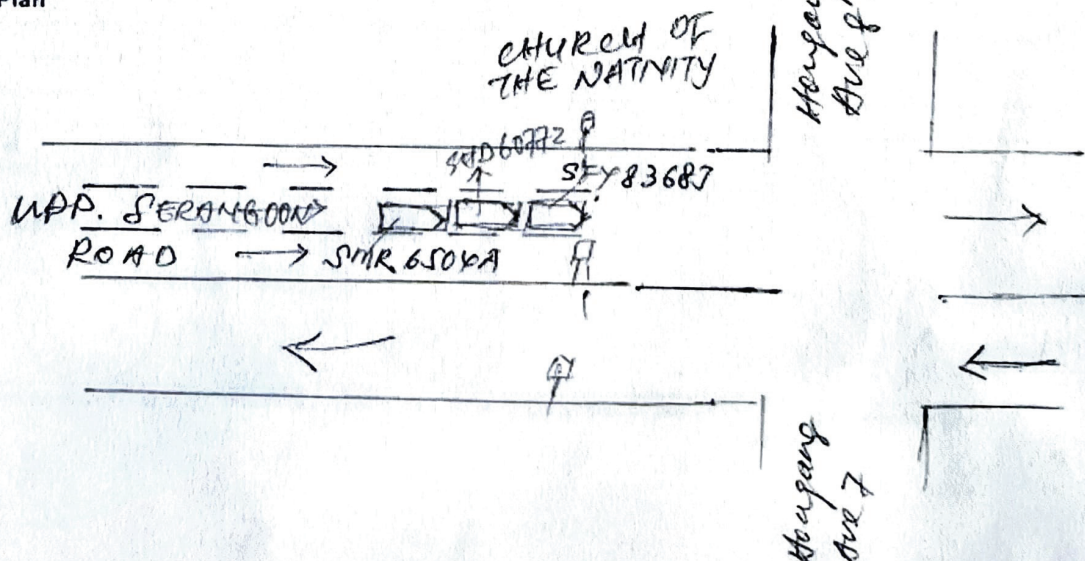 Plan
CHURCH OF
THE NATIVITY
Hougang
Ave 8
SFY8368J
UPP. SERANGOON
ROAD
SMR6504A
Hougang
Ave 7